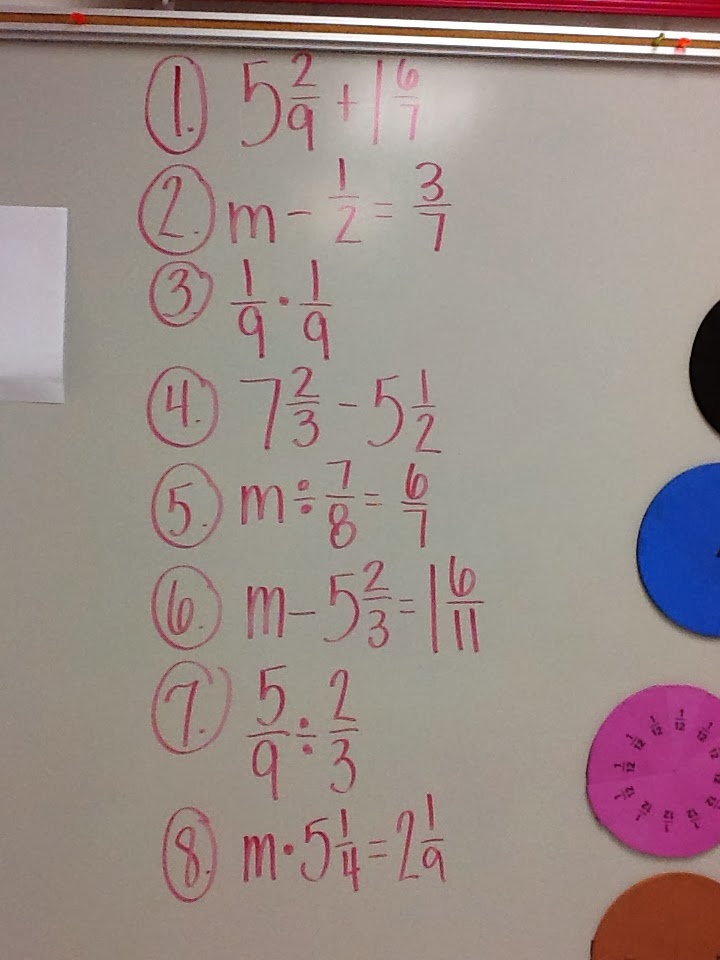 1. 5 2/9 + 1 6/7
2. m - 1/2 = 3/7
3. 1/9 · 1/9
4. 7 2/3 - 5 1/2
5. m ÷ 7/8 = 6/7
6. m - 5 2/3 = 1 6/11
7. 5/9 ÷ 2/3
8. m · 5 1/4 = 2 1/9
1/12 1/12 1/12 1/12 1/12 1/12 1/12 1/12 1/12